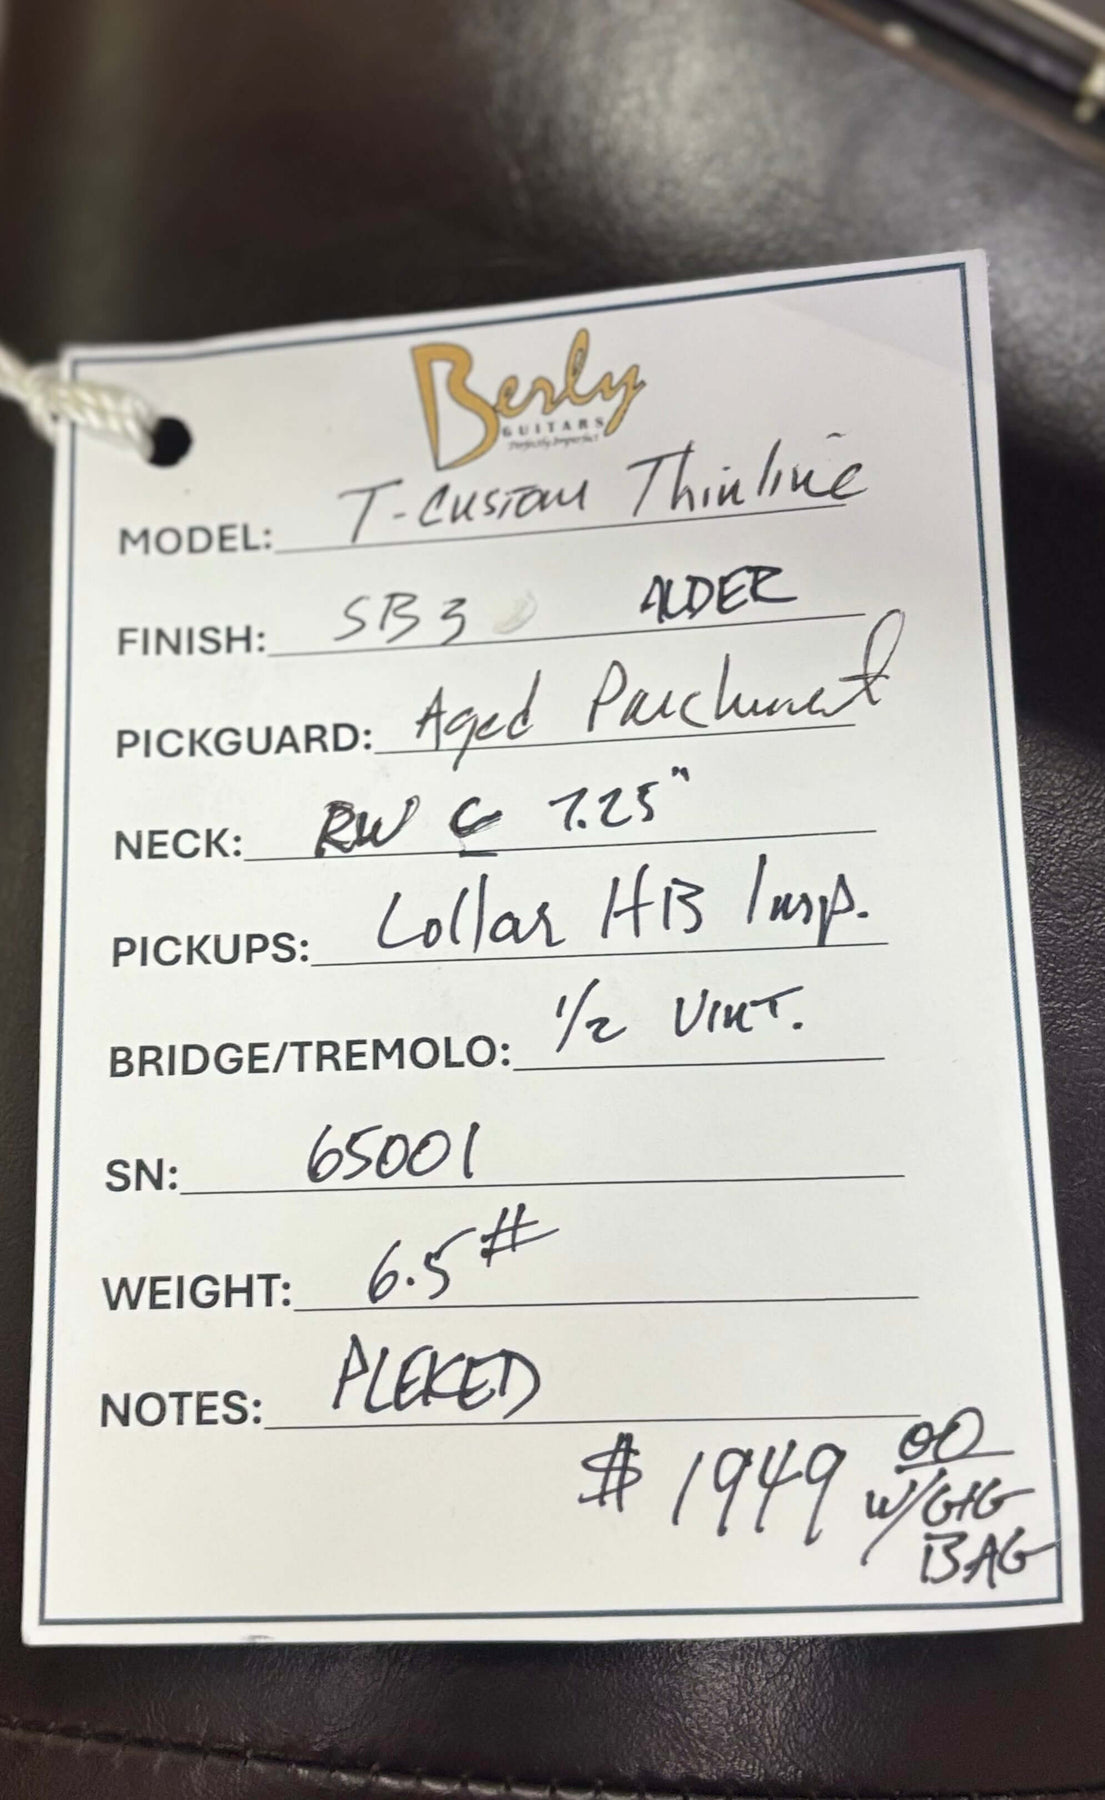 Berly
GUITARS
Perfectly Imperfect
MODEL: T-Custom Thinline
FINISH: SB3 ALDER
PICKGUARD: Aged Parchment
NECK: RW C 7.25"
PICKUPS: Lollar HB Insp.
BRIDGE/TREMOLO: 1/2 VINT.
SN: 65001
WEIGHT: 6.5#
NOTES: PLEKED
$1949 00
W/GIG
BAG